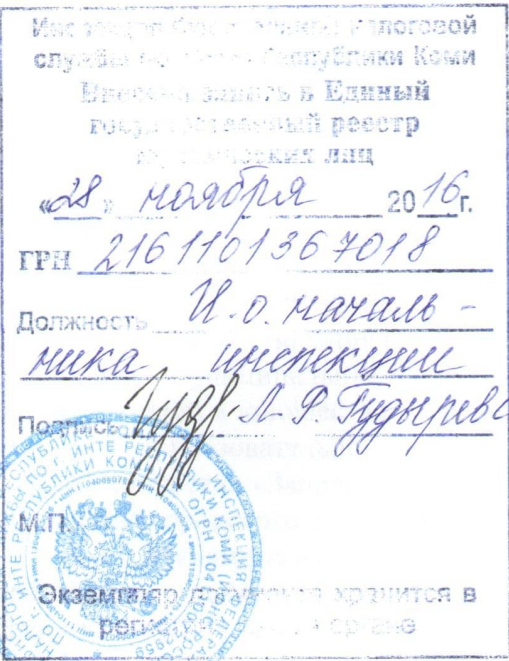 Инспекция Федеральной налоговой
службы по г. Инте Республики Коми
Внесена запись в Единый
государственный реестр
юридических лиц
«28» ноября 2016г.
ГРН 2161101367018
Должность И.о. началь-
ника инспекции
Подпись Л.Р. Гудырева
М.П.
Экземпляр документа хранится в
регистрирующем органе